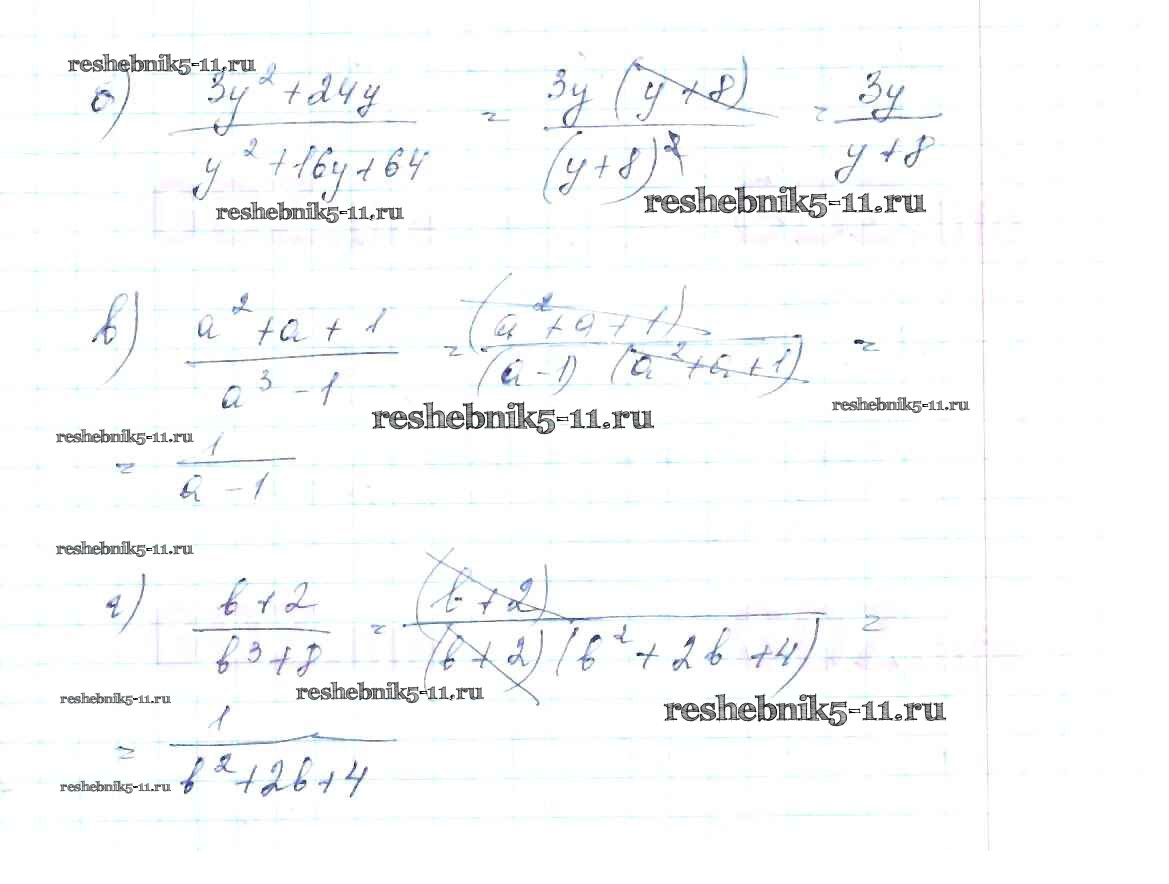 reshebnik5-11.ru
б) (3y² + 24y)/(y² + 16y + 64) = (3y (y + 8))/((y + 8)²) = 3y/(y + 8)
reshebnik5-11.ru
reshebnik5-11.ru
в) (a² + a + 1)/(a³ - 1) = (a² + a + 1)/((a - 1) (a² + a + 1)) =
reshebnik5-11.ru
reshebnik5-11.ru
reshebnik5-11.ru
= 1/(a - 1)
reshebnik5-11.ru
г) (b + 2)/(b³ + 8) = (b + 2)/((b + 2) (b² + 2b + 4)) =
reshebnik5-11.ru
reshebnik5-11.ru
reshebnik5-11.ru
= 1/(b² + 2b + 4)
reshebnik5-11.ru